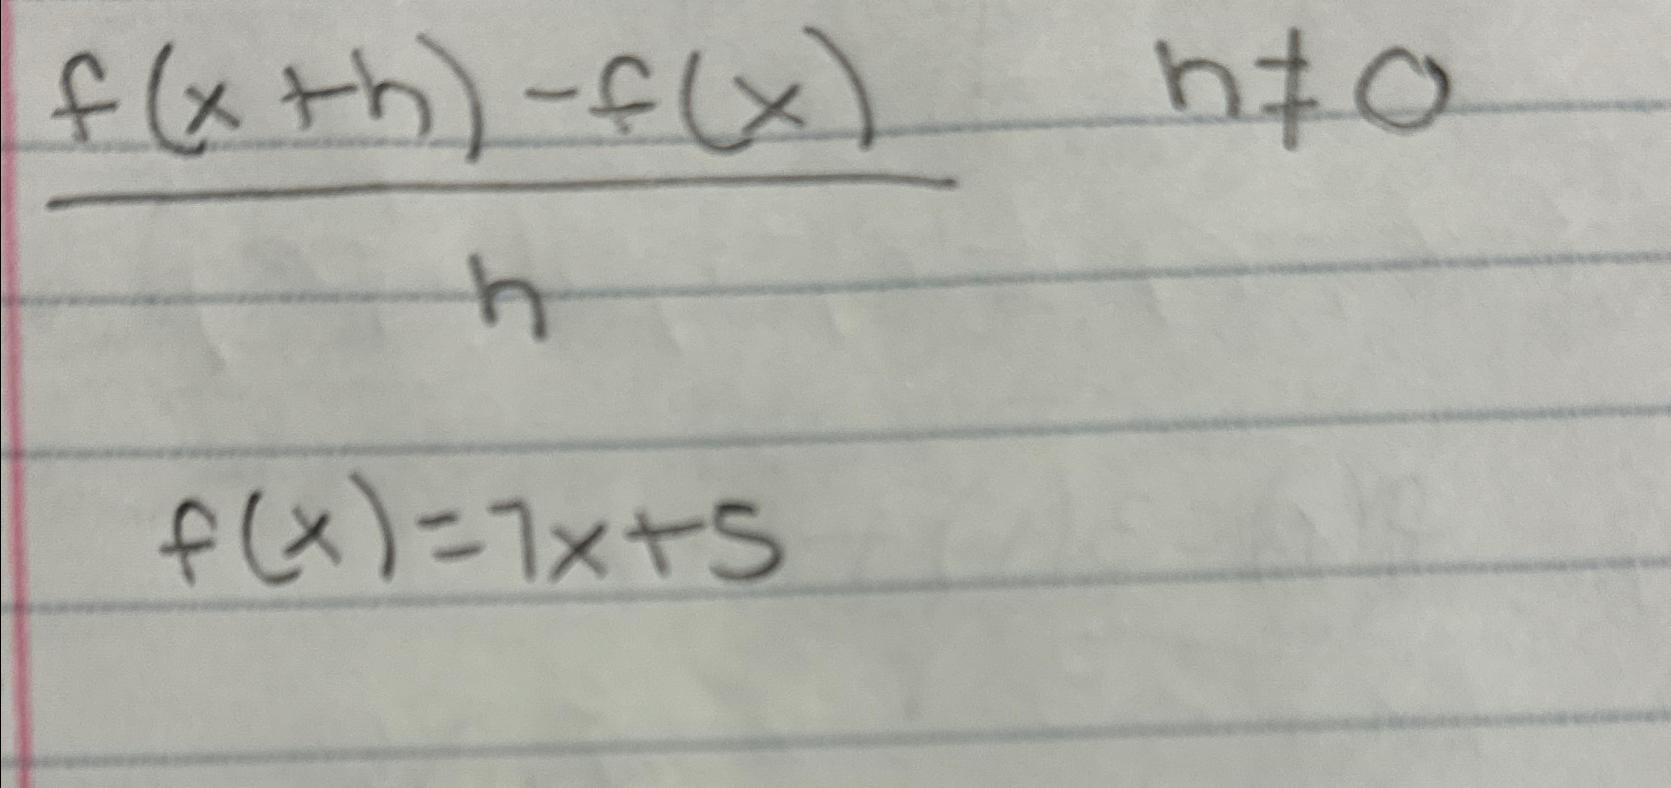 f(x+h)-f(x) h≠0
h
f(x)=7x+5